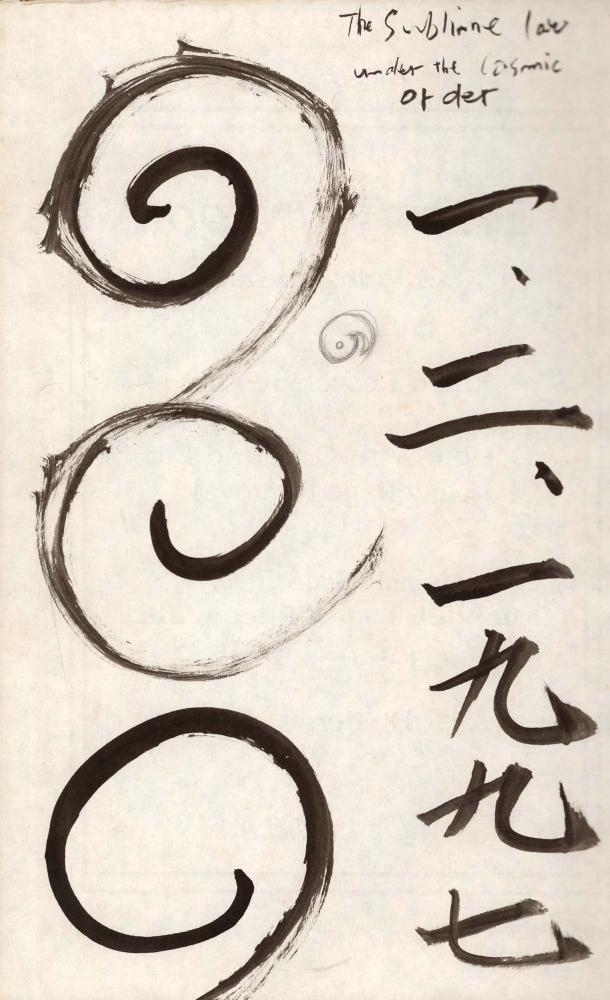 The Sublime law
under the Cosmic
order
一、二、一九九七